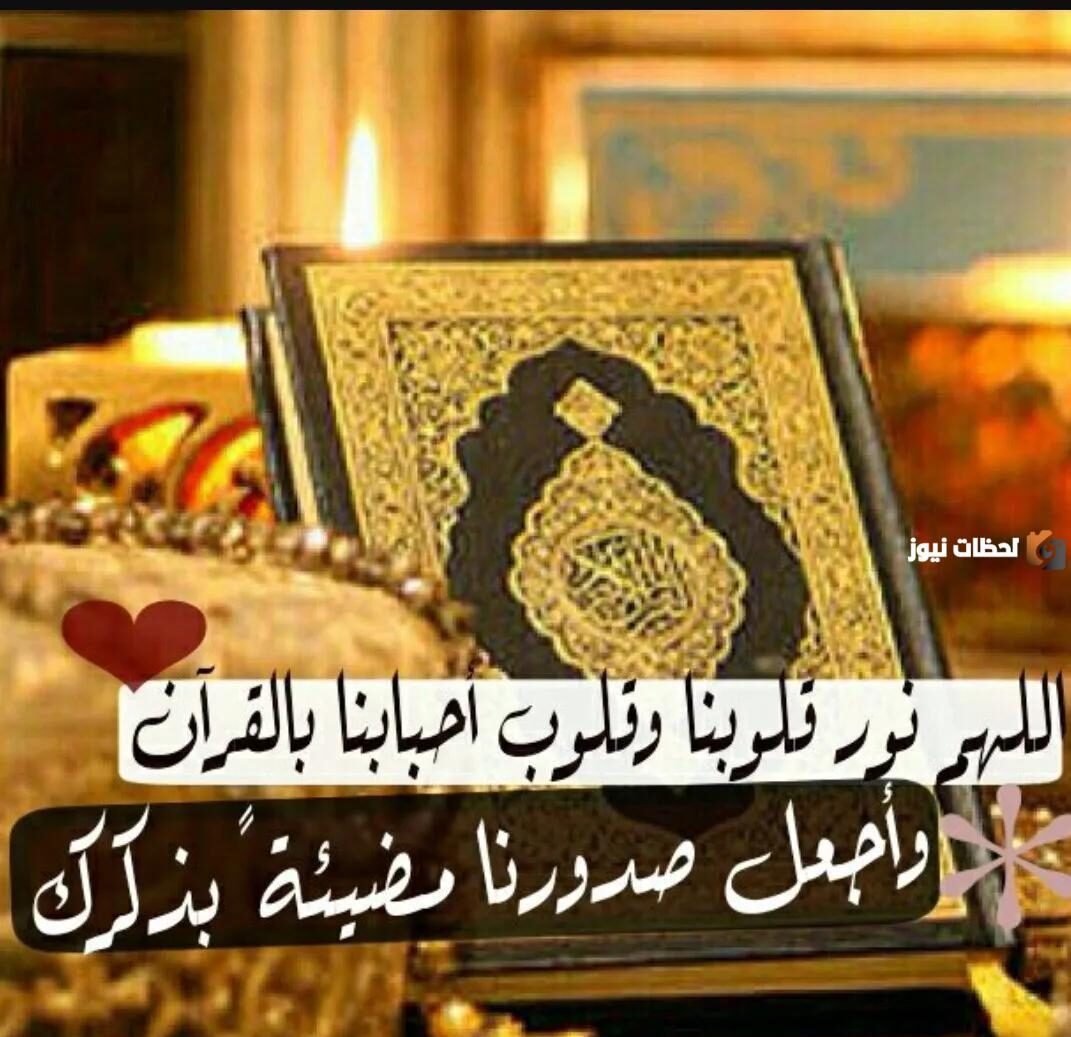 لحظات نيوز
اللهم نور قلوبنا وقلوب أحبابنا بالقرآن
وأجعل صدورنا مضيئة ً بذكرك